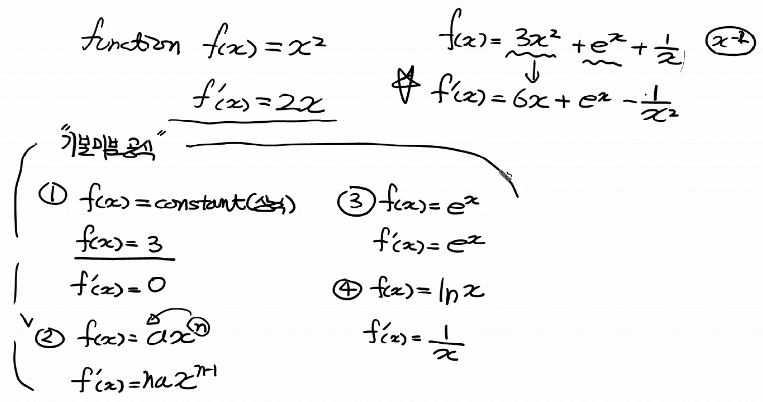 function f(x) = x²
f'(x) = 2x
f(x) = 3x² + e^x + 1/x
f'(x) = 6x + e^x - 1/x²
"기본미분공식"
① f(x) = constant(상수)
f(x) = 3
f'(x) = 0
② f(x) = ax^n
f'(x) = nax^(n-1)
③ f(x) = e^x
f'(x) = e^x
④ f(x) = ln x
f'(x) = 1/x